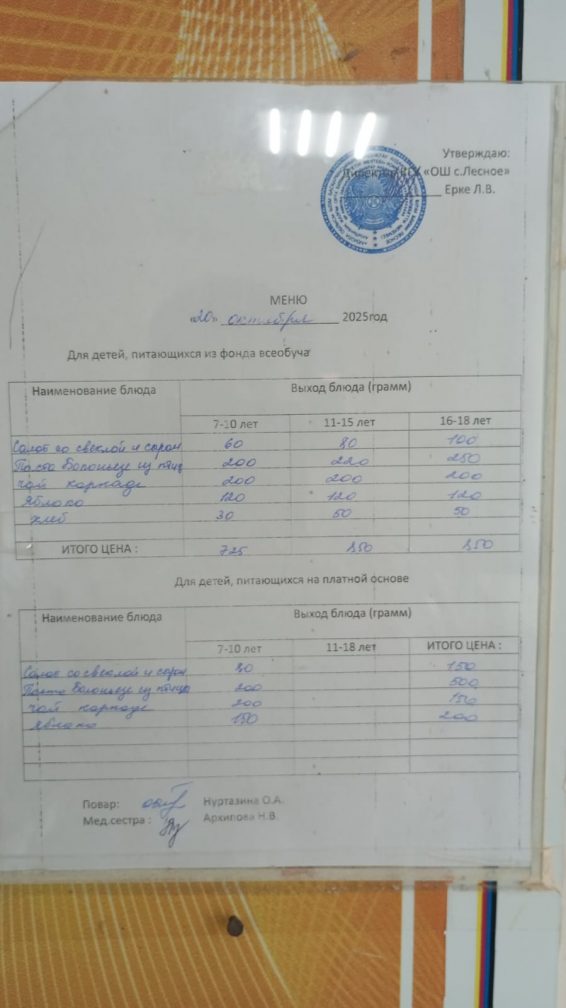 Утверждаю:
Директор КГУ «ОШ с.Лесное»
Ерке Л.В.
МЕНЮ
«20» октября 2025год
Для детей, питающихся из фонда всеобуча
Наименование блюда Выход блюда (грамм)
7-10 лет 11-15 лет 16-18 лет
Салат со свеклой и сыром 60 80 100
Паста Болоньезе из птицы 200 220 250
Чай каркаде 200 200 200
Яблоко 120 120 120
хлеб 30 50 50
ИТОГО ЦЕНА : 725 850 850
Для детей, питающихся на платной основе
Наименование блюда Выход блюда (грамм)
7-10 лет 11-18 лет ИТОГО ЦЕНА :
Салат со свеклой и сыром 80 150
Паста Болоньезе из птицы 200 500
Чай каркаде 200 150
Яблоко 150 200
Повар: Нуртазина О.А.
Мед.сестра : Архипова Н.В.